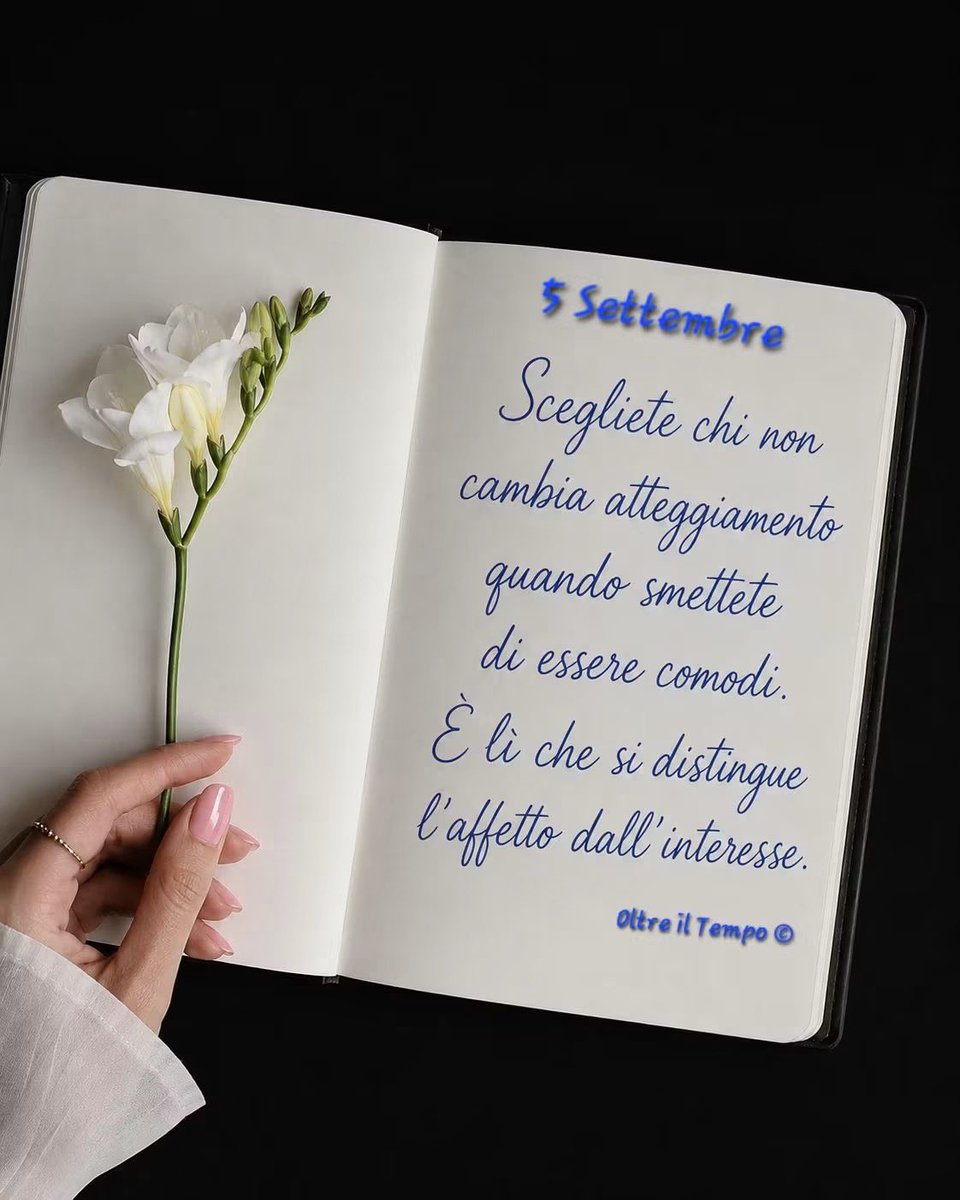 5 Settembre
Scegliete chi non
cambia atteggiamento
quando smettete
di essere comodi.
È lì che si distingue
l'affetto dall'interesse.
Oltre il Tempo ©